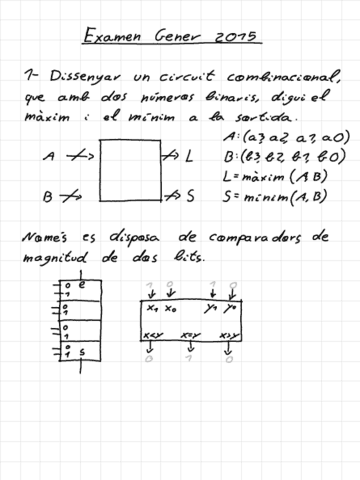 Examen Gener 2015
1- Dissenyar un circuit combinacional,
que amb dos números binaris, digui el
màxim i el mínim a la sortida.
A: (a3, a2, a1, a0)
A L B: (b3, b2, b1, b0)
L = màxim (A B)
B S S = mínim (A, B)
Només es disposa de comparadors de
magnitud de dos bits.
0 e 1 0 1 0
1
0 x1 x0 y1 y0
1
0
1 x<y x=y x>y
0
1 s 0 1 0